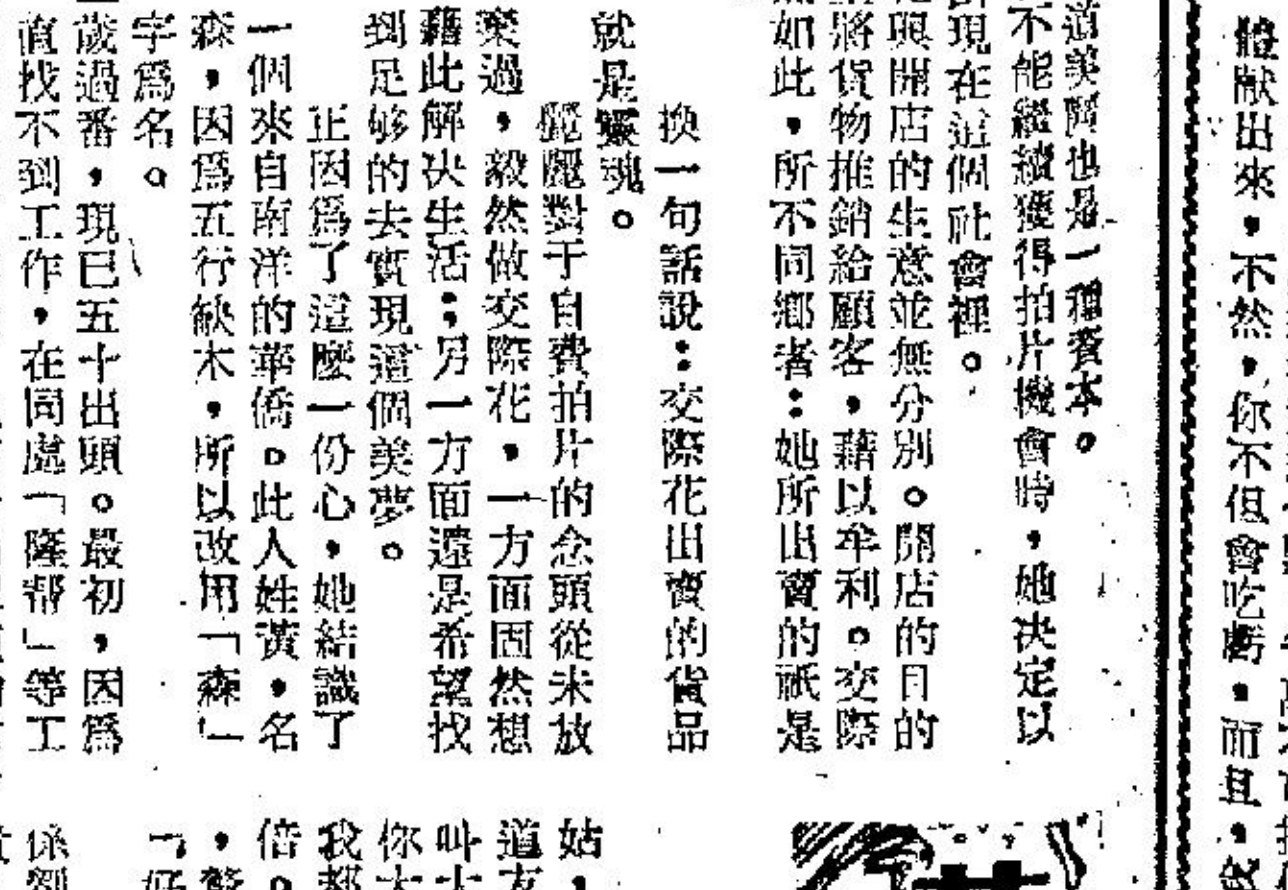 體献出來,不然,你不但會吃虧,而且,
道美麗也是一種資本。
不能繼續獲得拍片機會時,她决定以
現在這個社會裡。
與開店的生意並無分別。開店的目的
將貨物推銷給顧客,藉以牟利。交際
如此,所不同鄉者:她所出賣的祇是
換一句話說:交際花出賣的貨品
就是靈魂。
麗麗對于自費拍片的念頭從未放
棄過,毅然做交際花,一方面固然想
藉此解决生活:另一方面還是希望找
到足够的去實現這個美夢。
正因爲了這麼一份心,她結識了
一個來自南洋的華僑。此人姓黃,名
森,因爲五行缺木,所以改用「森」
字爲名。
歲過番,現已五十出頭。最初,因爲
直找不到工作,在同處「隆帮」等工
姑,
道友
叫大
你大
我都
倍。
,
「好
係